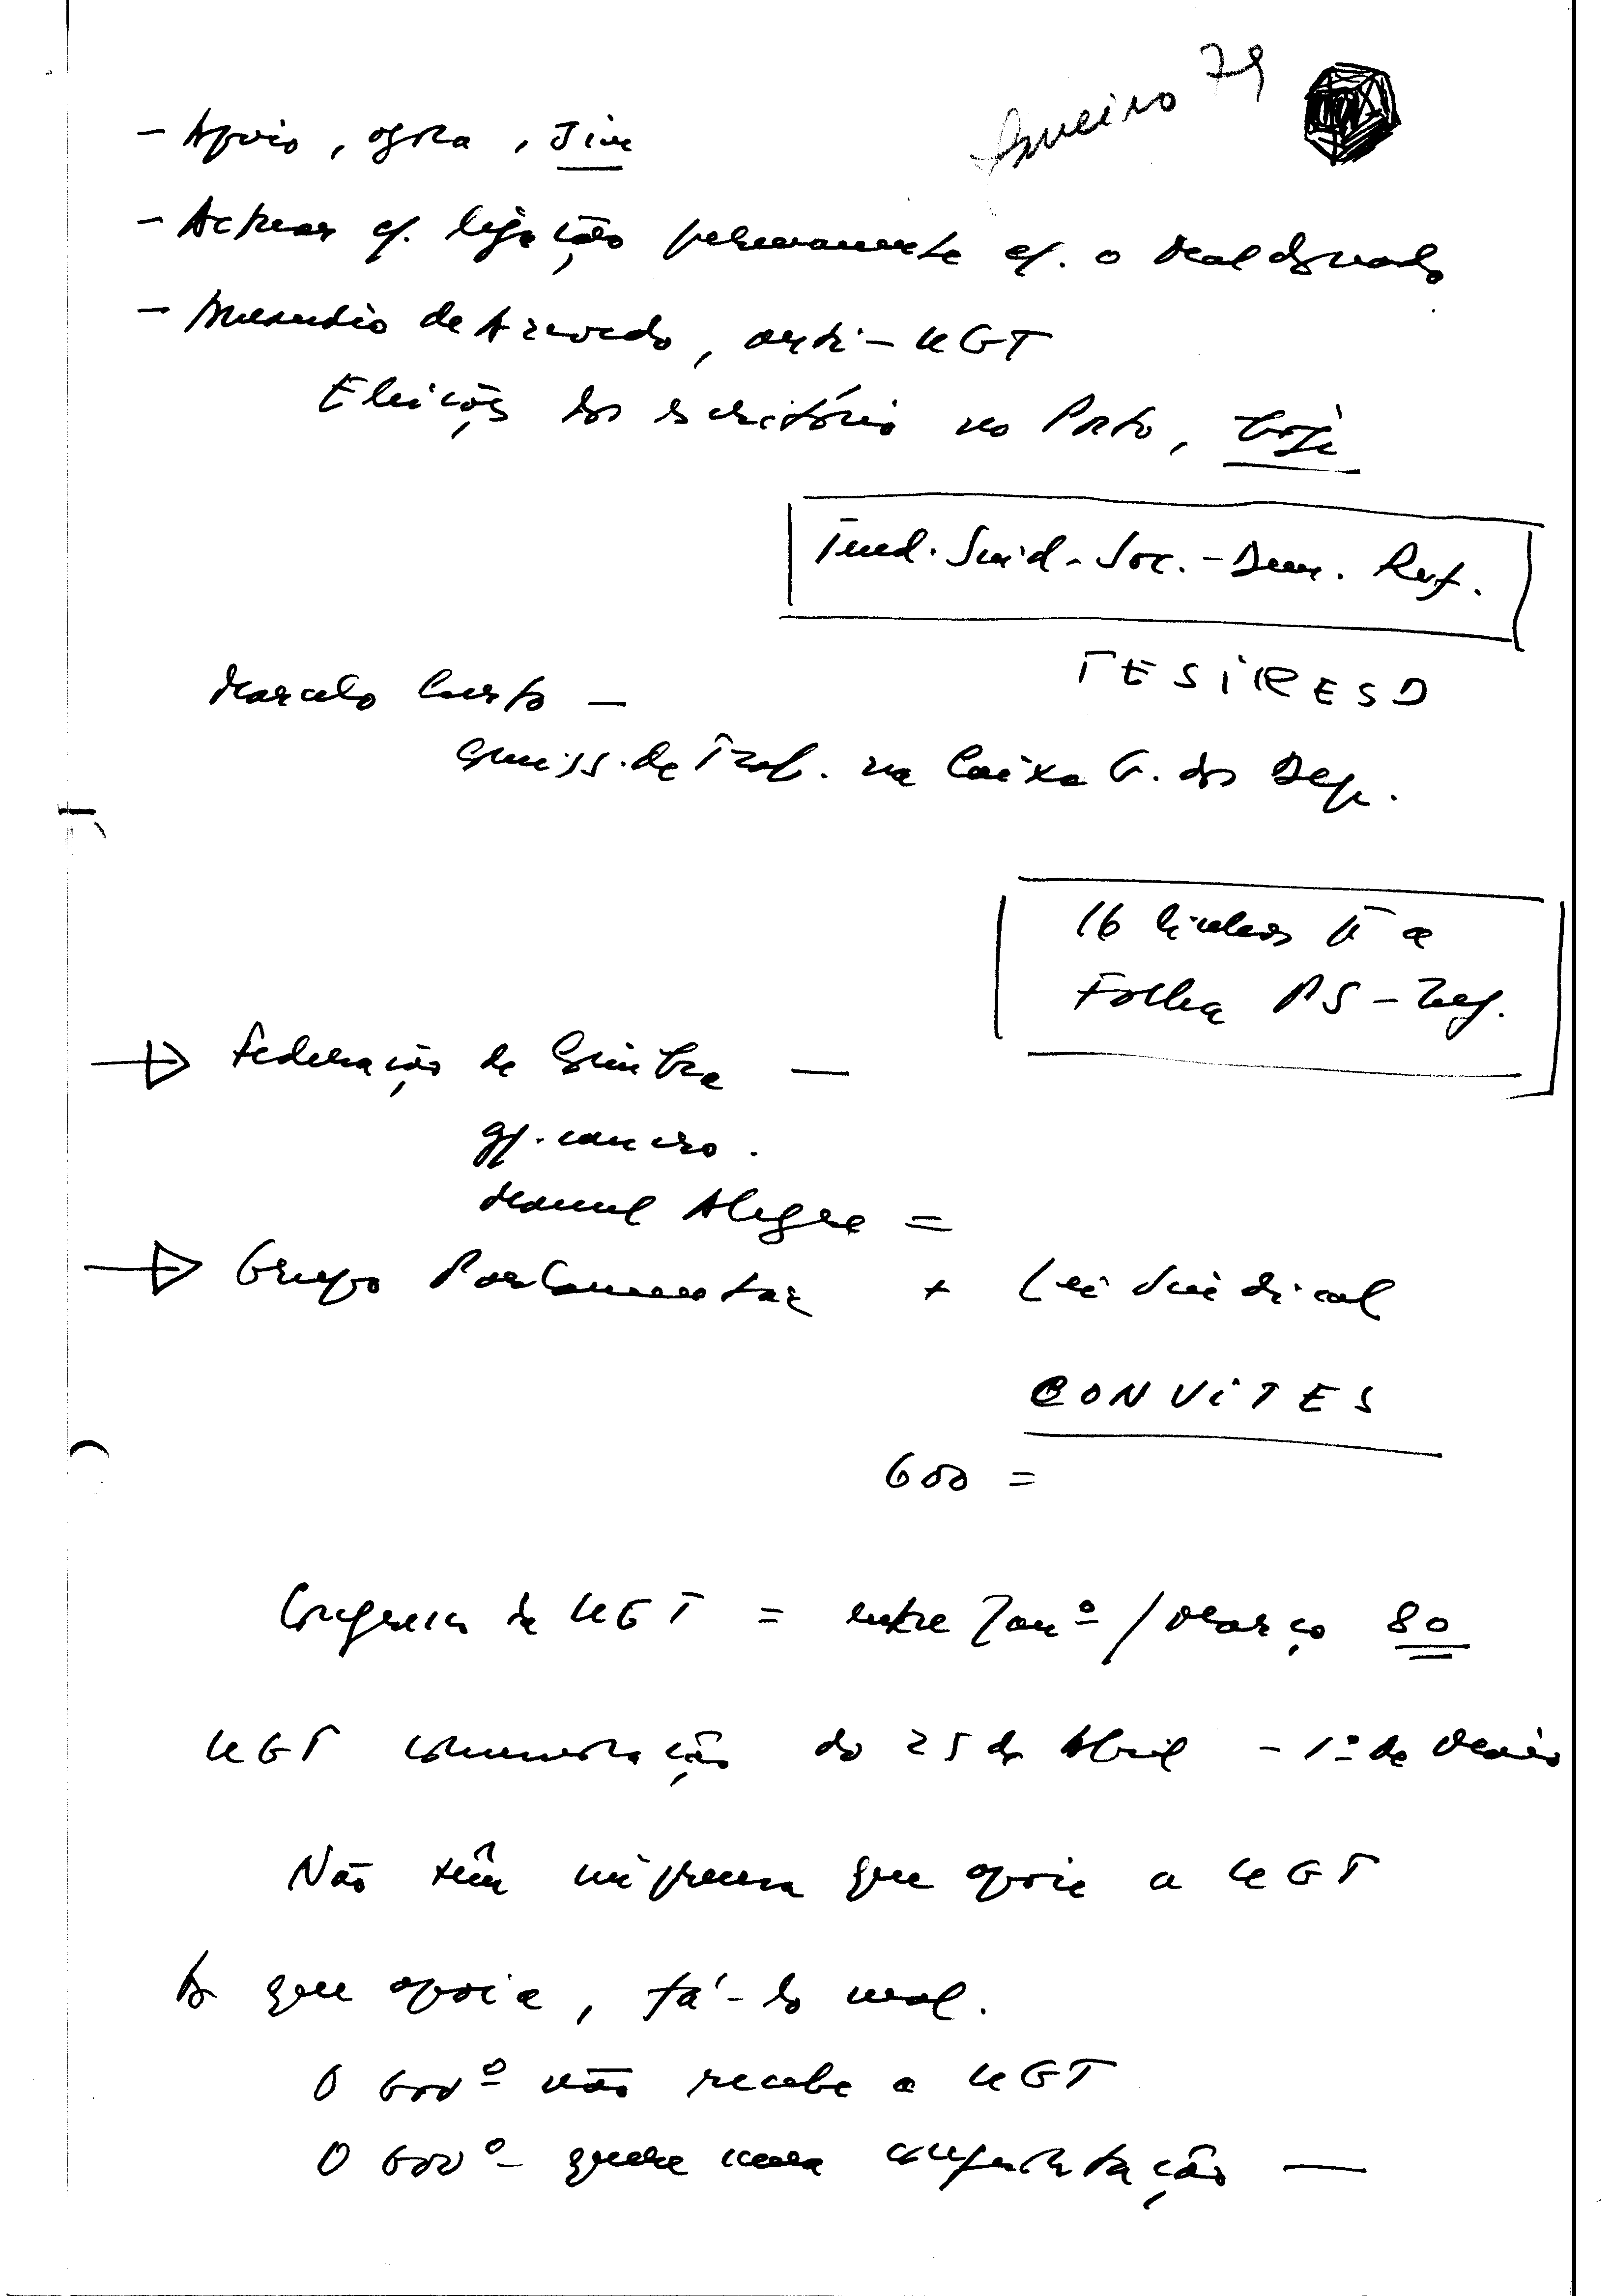 Janeiro 79
- Apoio, agora, sim
- Actuar c/. ligação permanente c/. o
- de Azevedo, anti-UGT
Eleições dos escritórios no Porto, hoje
Tend. Sind. Soc.-Dem. Ref.
TESIRESD
Marcelo Curto -
Comiss. de Trab. na Caixa G. dos Dep.
16
Folha PS-
→ Federação de Coimbra -
gp.
Manuel Alegre =
→ Grupo Parlamentar + Lei Sindical
CONVITES
600 =
Congresso da UGT = entre Janº / Março 80
UGT comemoração do 25 de Abril - 1º de Maio
Não têm imprensa que apoie a UGT
A que apoia, fá-lo mal.
O Govº não recebe a UGT
O Govº - quere uma